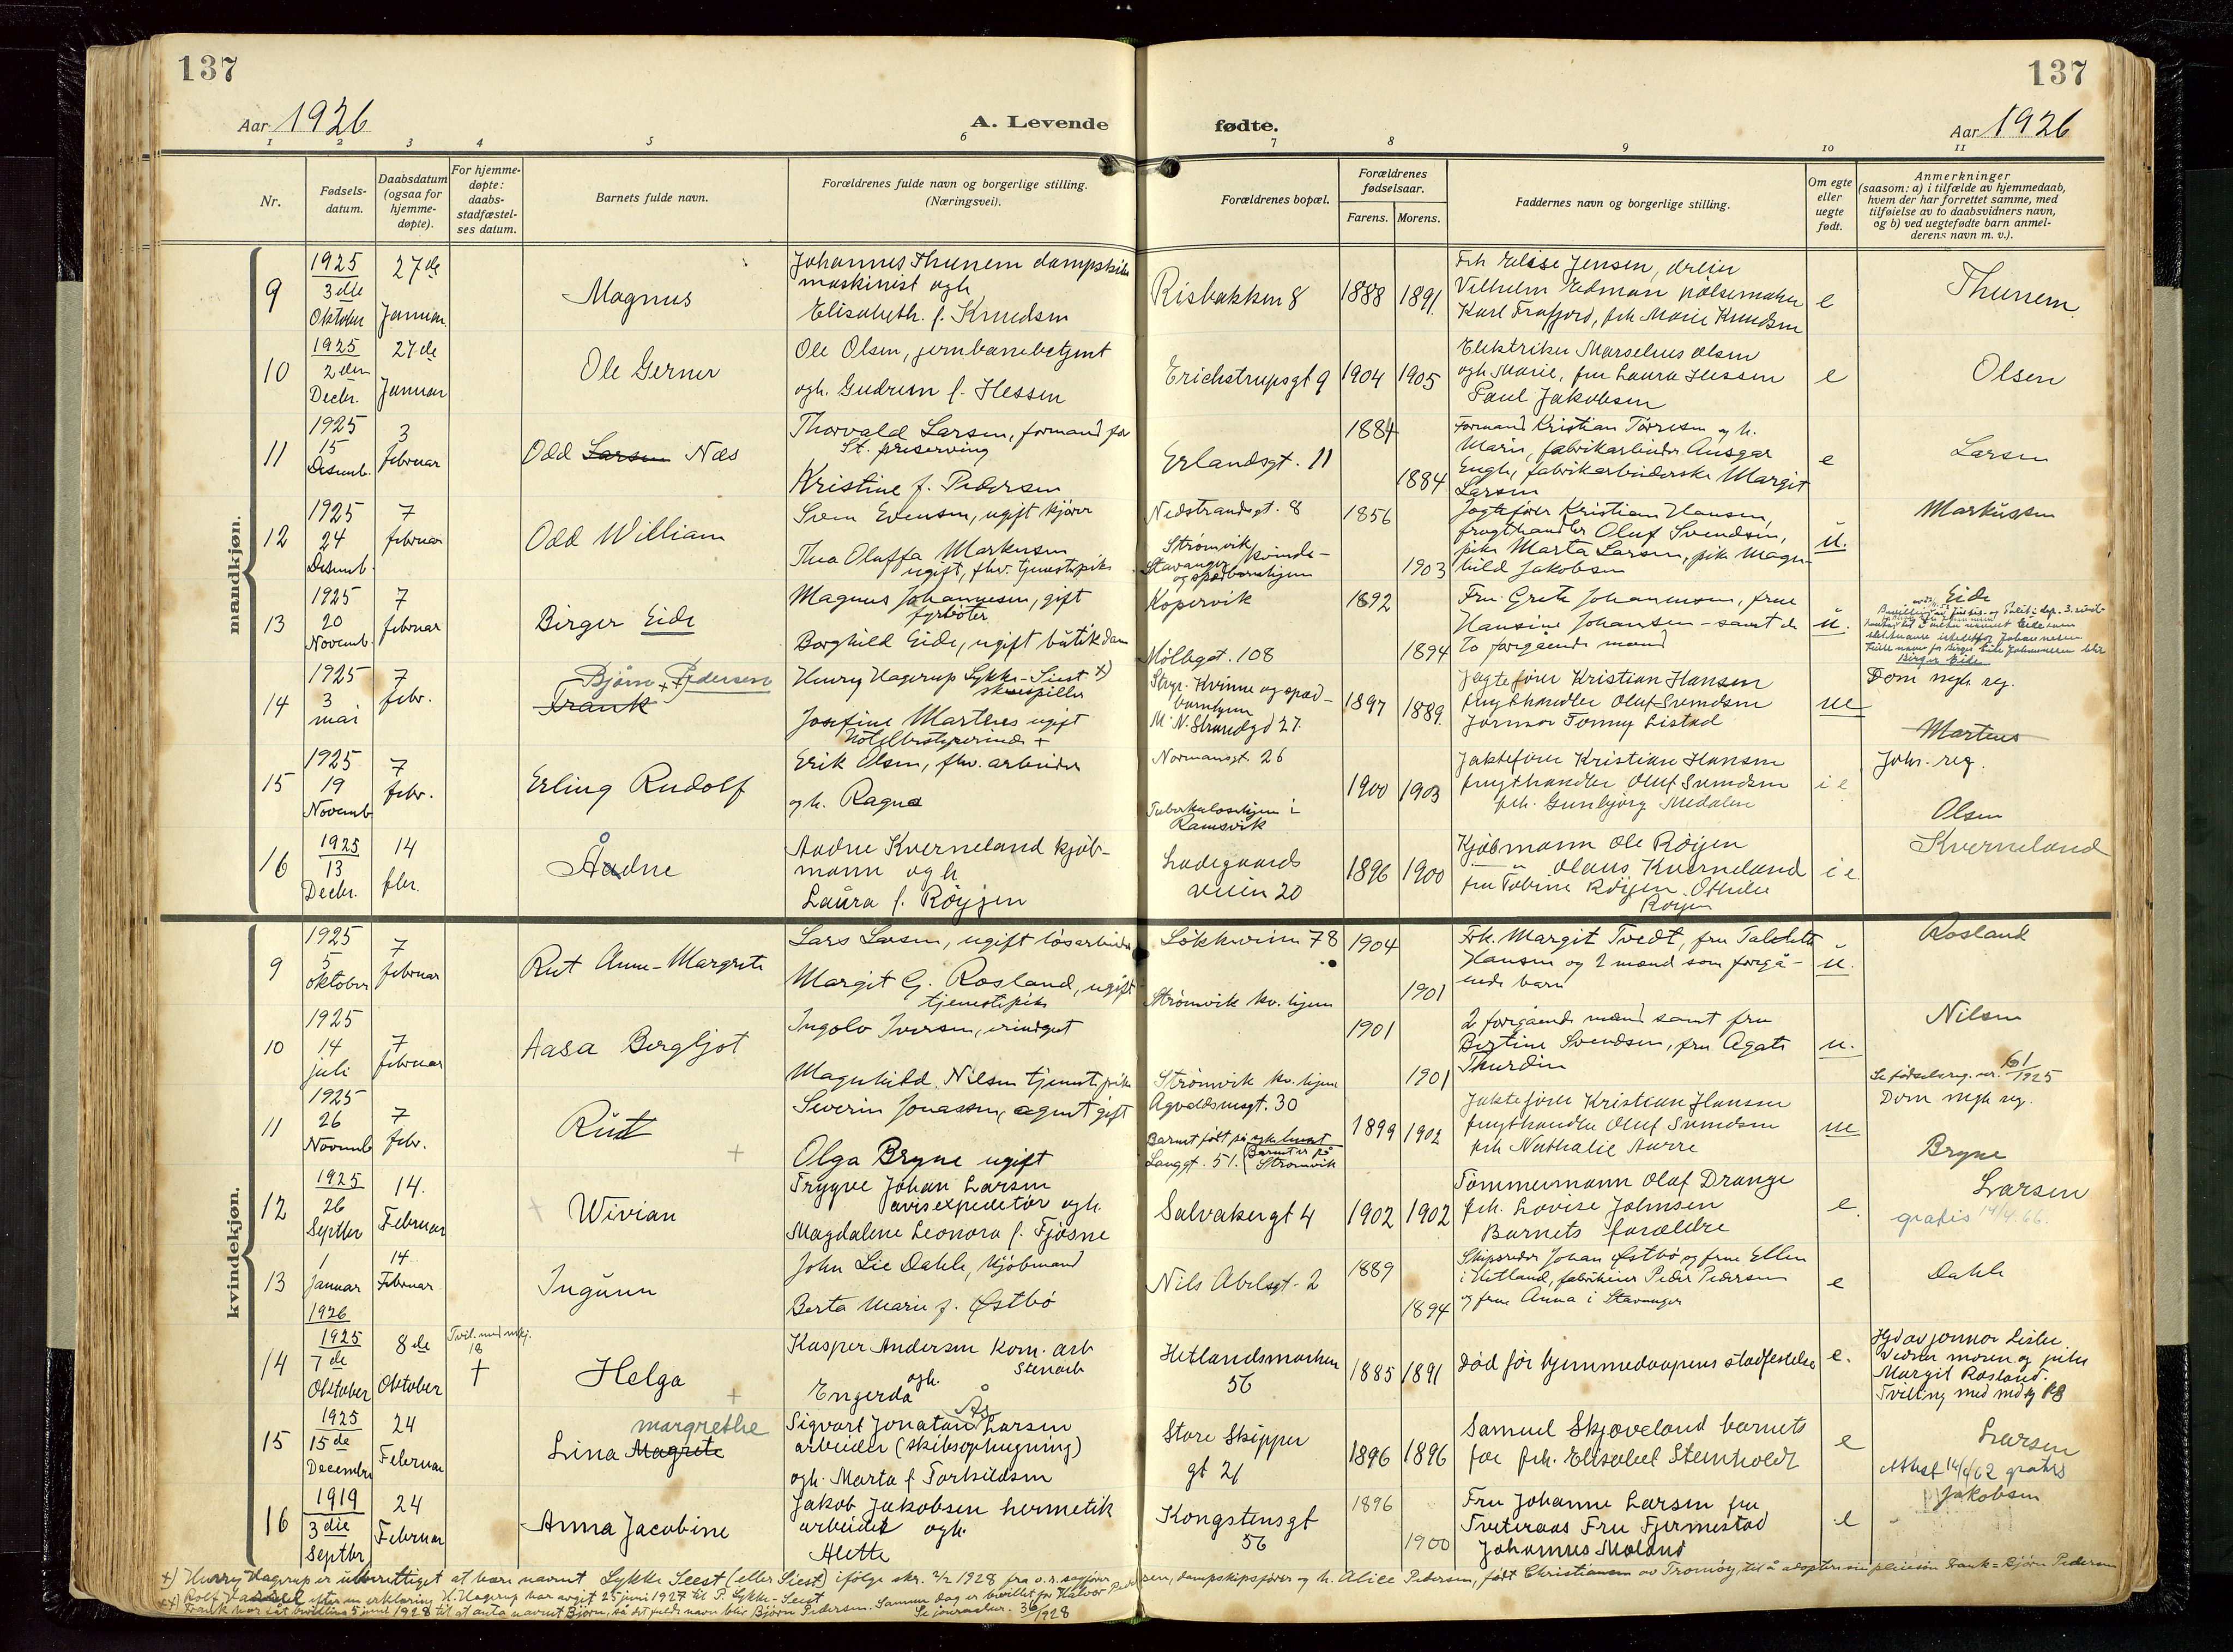 137
137
Aar 1926
A. Levende
fødte.
Aar 1926
1 2 3 4 5 6 7 8 9 10 11
Nr.
Fødsels-
datum.
Daabsdatum
(ogsaa for
hjemme-
døpte).
For hjemme-
døpte:
daabs-
stadfæstel-
ses datum.
Barnets fulde navn.
Forældrenes fulde navn og borgerlige stilling.
(Næringsvei).
Forældrenes bopæl.
Forældrenes
fødselsaar.
Farens. Morens.
Faddernes navn og borgerlige stilling.
Om egte
eller
uegte
født.
Anmerkninger
(saasom: a) i tilfælde av hjemmedaab,
hvem der har forrettet samme, med
tilføielse av to daabsvidners navn,
og b) ved uegtefødte barn anmel-
derens navn m. v.).
mandkjøn.
9
1925
3die
Oktober
27de
Januar
Magnus
Johannes Thunem dampskibs
maskinist ogh
Elisabeth. f. Knudsen
Risbakken 8
1888 1891
Frk Elise Jensen,
Vilhelm Edman pølsemaker
Karl Frafjord, frk Marie Knudsen
e
Thunem
10
1925
2den
Decbr.
27de
Januar
Ole Gerner
Ole Olsen, jernbanebetjent
ogh. Gudrun f. Hessen
Erichstrupsgt 9
1904 1905
Elektriker Marselius Olsen
ogh Marie, fru Laura Hessen
Paul Jakobsen
e
Olsen
11
1925
15
Desemb.
3
februar
Odd Larsen Næs
Thorvald Larsen, formand for
St. preserving
Kristine f. Pedersen
Erlandsgt. 11
1884
1884
Formand Kristian Tørresen og h.
Marie, fabrikarbeider Ansgar
Engh, fabrikarbeiderske Margit
Larsen
e
Larsen
12
1925
24
Desemb.
7
februar
Odd William
Sven Evensen, ugift kjører
Thea Oluffa Markusen
ugift, fhv. tjenestepike
Nedstrandsgt. 8
Strømvik
Stavanger kvinde-
og spedbarnhjem
1856
1903
Jagtefører Kristian Hansen,
frugthandler Oluf Svendsen,
pike Marta Larsen, pike Magn-
hild Jakobsen
u.
Markussen
13
1925
20
Novemb.
7
februar
Birger Eide
Magnus Johannesen, gift
fyrbøter
Borghild Eide, ugift butikdam
Kopervik
Møllegt. 108
1892
1894
Fru Grete Johannesen, frue
Hansine Johansen - samt de
to forgående mænd
u.
Eide
Birger Eide
14
1925
3
mai
7
febr.
Bjørn Pedersen
Frank
Henry Hagerup Lykke-Seest x)
skuespiller
Josefine Martens ugift
Hotelbestyrerinde +
Stvgr. Kvinne og sped-
barnhjem
M. N. Strandgd 27.
1897 1889
Jagtefører Kristian Hansen
frugthandler Oluf Svendsen
Jormor Tonny Listad
ue
Dom mgh. reg.
Martens
15
1925
19
Novemb
7
febr.
Erling Rudolf
Erik Olsen, fhv. arbeider
og h. Ragna
Normansgt. 26
Tuberkulosehjem i
Ramsvik
1900 1903
Jaktefører Kristian Hansen
frugthandler Oluf Svendsen
frk. Gunbjørg Medalen
i e
Johs. reg.
Olsen
16
1925
13
Decbr.
14
febr.
Ådne
Aadne Kverneland kjøb-
mann ogh
Laura f. Røyjen
Ladegaards
veien 20
1896 1900
Kjøbmann Ole Røijen
— " — Olaus Kverneland
fru Tobine Røijen Othilie
Røyen
i e.
Kverneland
kvindekjøn.
9
1925
5
oktober
7
februar
Rut Anne-Margrete
Lars Larsen, ugift løsarbeider
Margit G. Rosland, ugift
tjenestepike
Løkkeveien 78
Strømvik kv. hjem
1904
1901
Frk. Margit Tvedt, fru Talette
Hansen og 2 mænd som forgå-
ende barn
u.
Rosland
10
1925
14
juli
7
februar
Aasa Bergljot
Ingolv Iversen, visergut
Magnhild Nilsen tjenestepike
Strømvik kv. hjem
1901
1901
2 forgående mænd samt fru
Bertine Svendsen, fru Agate
Thurdin
u.
Nilsen
Se fødselsreg. nr. 61/1925
11
1925
26
Novemb
7
febr.
Rut
Severin Jonassen, agent gift
Olga Bryne ugift
Agvaldsensgt. 30
Barnet født på sykehuset
Langgt. 51. (Barnet er på
Strømvik
1899 1902
Jaktefører Kristian Hansen
frugthandler Oluf Svendsen
frk Nathalie Aarre
ue
Dom mgh reg.
Bryne
12
1925
26
Septbr
14.
Februar
Wivian
Trygve Johan Larsen
avisexpeditør ogh.
Magdalene Leonora f. Fjøsne
Salvakergt 4
1902 1902
Tømmermann Olaf Drange
frk. Lovise Johnsen
Barnets forældre
e.
Larsen
gratis 14/4.66.
13
1
Januar
1926
14
Februar
Ingunn
John Lie Dahle, Kjøbmand
Berta Marie f. Østbø
Nils Abelsgt. 2
1889
1894
Skipsreder Johan Østbø og frue Ellen
i Hetland, fabrikeier Peder Pedersen
og frue Anna i Stavanger
e
Dahle
14
1925
7de
Oktober
8de
Oktober
Tvil. med mkj.
18
†
Helga
Kasper Andersen kom. arb
Stenarb
ogh.
Engerda
Hetlandsmarken
56
1885 1891
død før hjemmedaapens stadfestelse
e.
Hjd av jormor Lislie
Vidner moren og pike
Margit Rosland.
Tvilling med mdkj 18
15
1925
15de
Decembr
24
Februar
margrethe
Lina Magrete
Ås
Sigvart Jonatan Larsen
arbeider (skibsophugning)
ogh. Marta f Torkildsen
Store Skipper
gt 21
1896 1896
Samuel Skjæveland barnets
far frk. Elisabet Steinholdt
e
Larsen
Attest 14/4 62 gratis
16
1919
3die
Septbr
24
Februar
Anna Jacobine
Jakob Jakobsen hermetik
arbeider ogh.
Alette
Kongstensgt
56
1896
1900
Fru Johanne Larsen fru
Tveteraas Fru Fjermestad
Johannes Moland
e
Jakobsen
+) Henry Hagerup er uberettiget at bære navnet Lykke Seest (eller Siest) ifølge skr. 2/2 1928 fra o.r. sagfører
Rolf efter en erklæring H. Hagerup har avgit 25 juni 1927 til P. Lykke-Seest
++) Frank har fåt bevilling 5 juni 1928 til at anta navnet Bjørn, så det fulde navn blir Bjørn Pedersen. Samme dag er bevillet for Halvor Pedersen, dampskipsfører og h. Alice Pedersen, født Christiansen av Tromøy, til å adoptere sin pleiesøn Frank = Bjørn Pedersen
Se journalnr. 36/1928